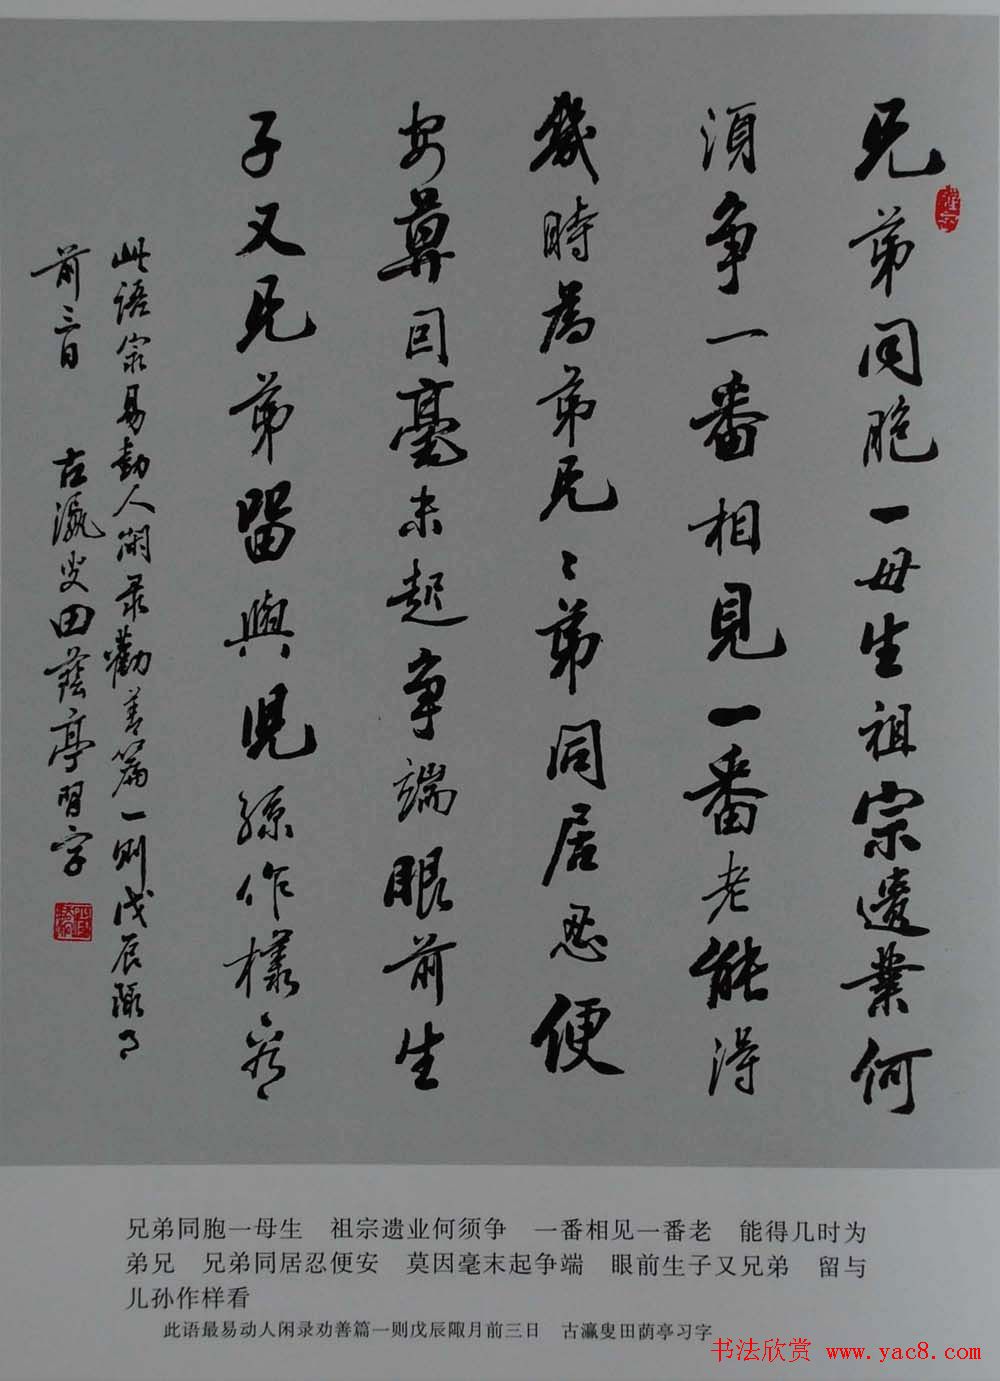 兄弟同胞一母生祖宗遺業何
須争一番相見一番老能得
幾時為弟兄兄弟同居忍便
安莫因毫末起争端眼前生
子又兄弟留與兒孫作樣看
此语最易動人闲录勸善篇一则戊辰陬月
前三日 古瀛叟田蔭亭習字
兄弟同胞一母生 祖宗遗业何须争 一番相见一番老 能得几时为
弟兄 兄弟同居忍便安 莫因毫末起争端 眼前生子又兄弟 留与
儿孙作样看
此语最易动人闲录劝善篇一则戊辰陬月前三日 古瀛叟田荫亭习字
书法欣赏 www.yac8.com